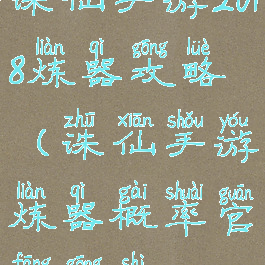 诛仙手游201
liàn qì gōng lüè
8炼器攻略
zhū xiān shǒu yóu
(诛仙手游
liàn qì gài shuài guān
炼器概率官
fāng gōng shì